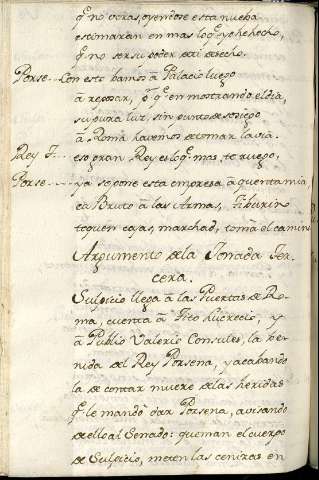 q.e no otras, oyendose esta nueba
estimaran en mas lo q.e yo he hecho,
q.e no ser su poder de mi derecho.
Porse... Con esto bamos à Palacio luego
à reposar, p.r q.e en mostrando el dia,
su pura luz, sin punto de sosiego
à Roma havemos de tomar la via.
Rey T... eso gran Rey es lo q.e mas te ruego,
Porse..... ya se pone esta empresa à quenta mia,
ea Bruto à las Armas, Tiburino
toquen cajas, marchad, toma el camino
Argumento de la Jornada Ter-
cera.
Sulpicio llega à las Puertas de Ro-
ma, cuenta à Tito Lucrecio, y
à Publio Valerio Consules, la ve-
nida del Rey Porsena, y acabando
la de contar muere de las heridas
q.e le mandò dar Porsena, avisando
de ello al Senado: queman el cuerpo
de Sulpicio, meten las cenizas en